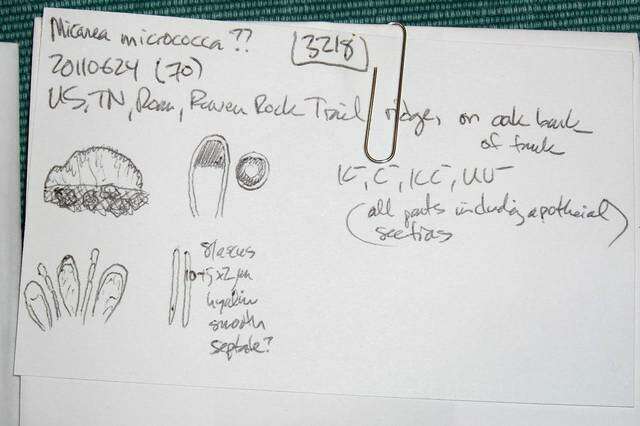 Micarea micrococca ??
3218
20110624 (70)
US, TN, Roan, Raven Rock Trail ridge, on oak bark
of trunk
K-, C-, KC-, UV-
(all parts including apothecial
sections)
8/ascus
10-15 x 2 µm
hyaline
smooth
septate?